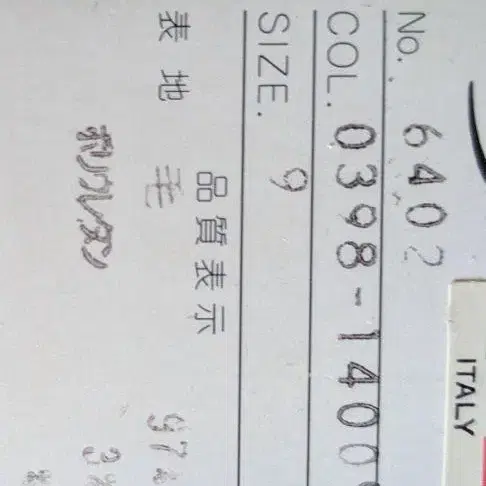 ITALY
No. 6402
COL. 0398-1400
SIZE. 9
品質表示
表地 毛 97%
ポリウレタン 3%